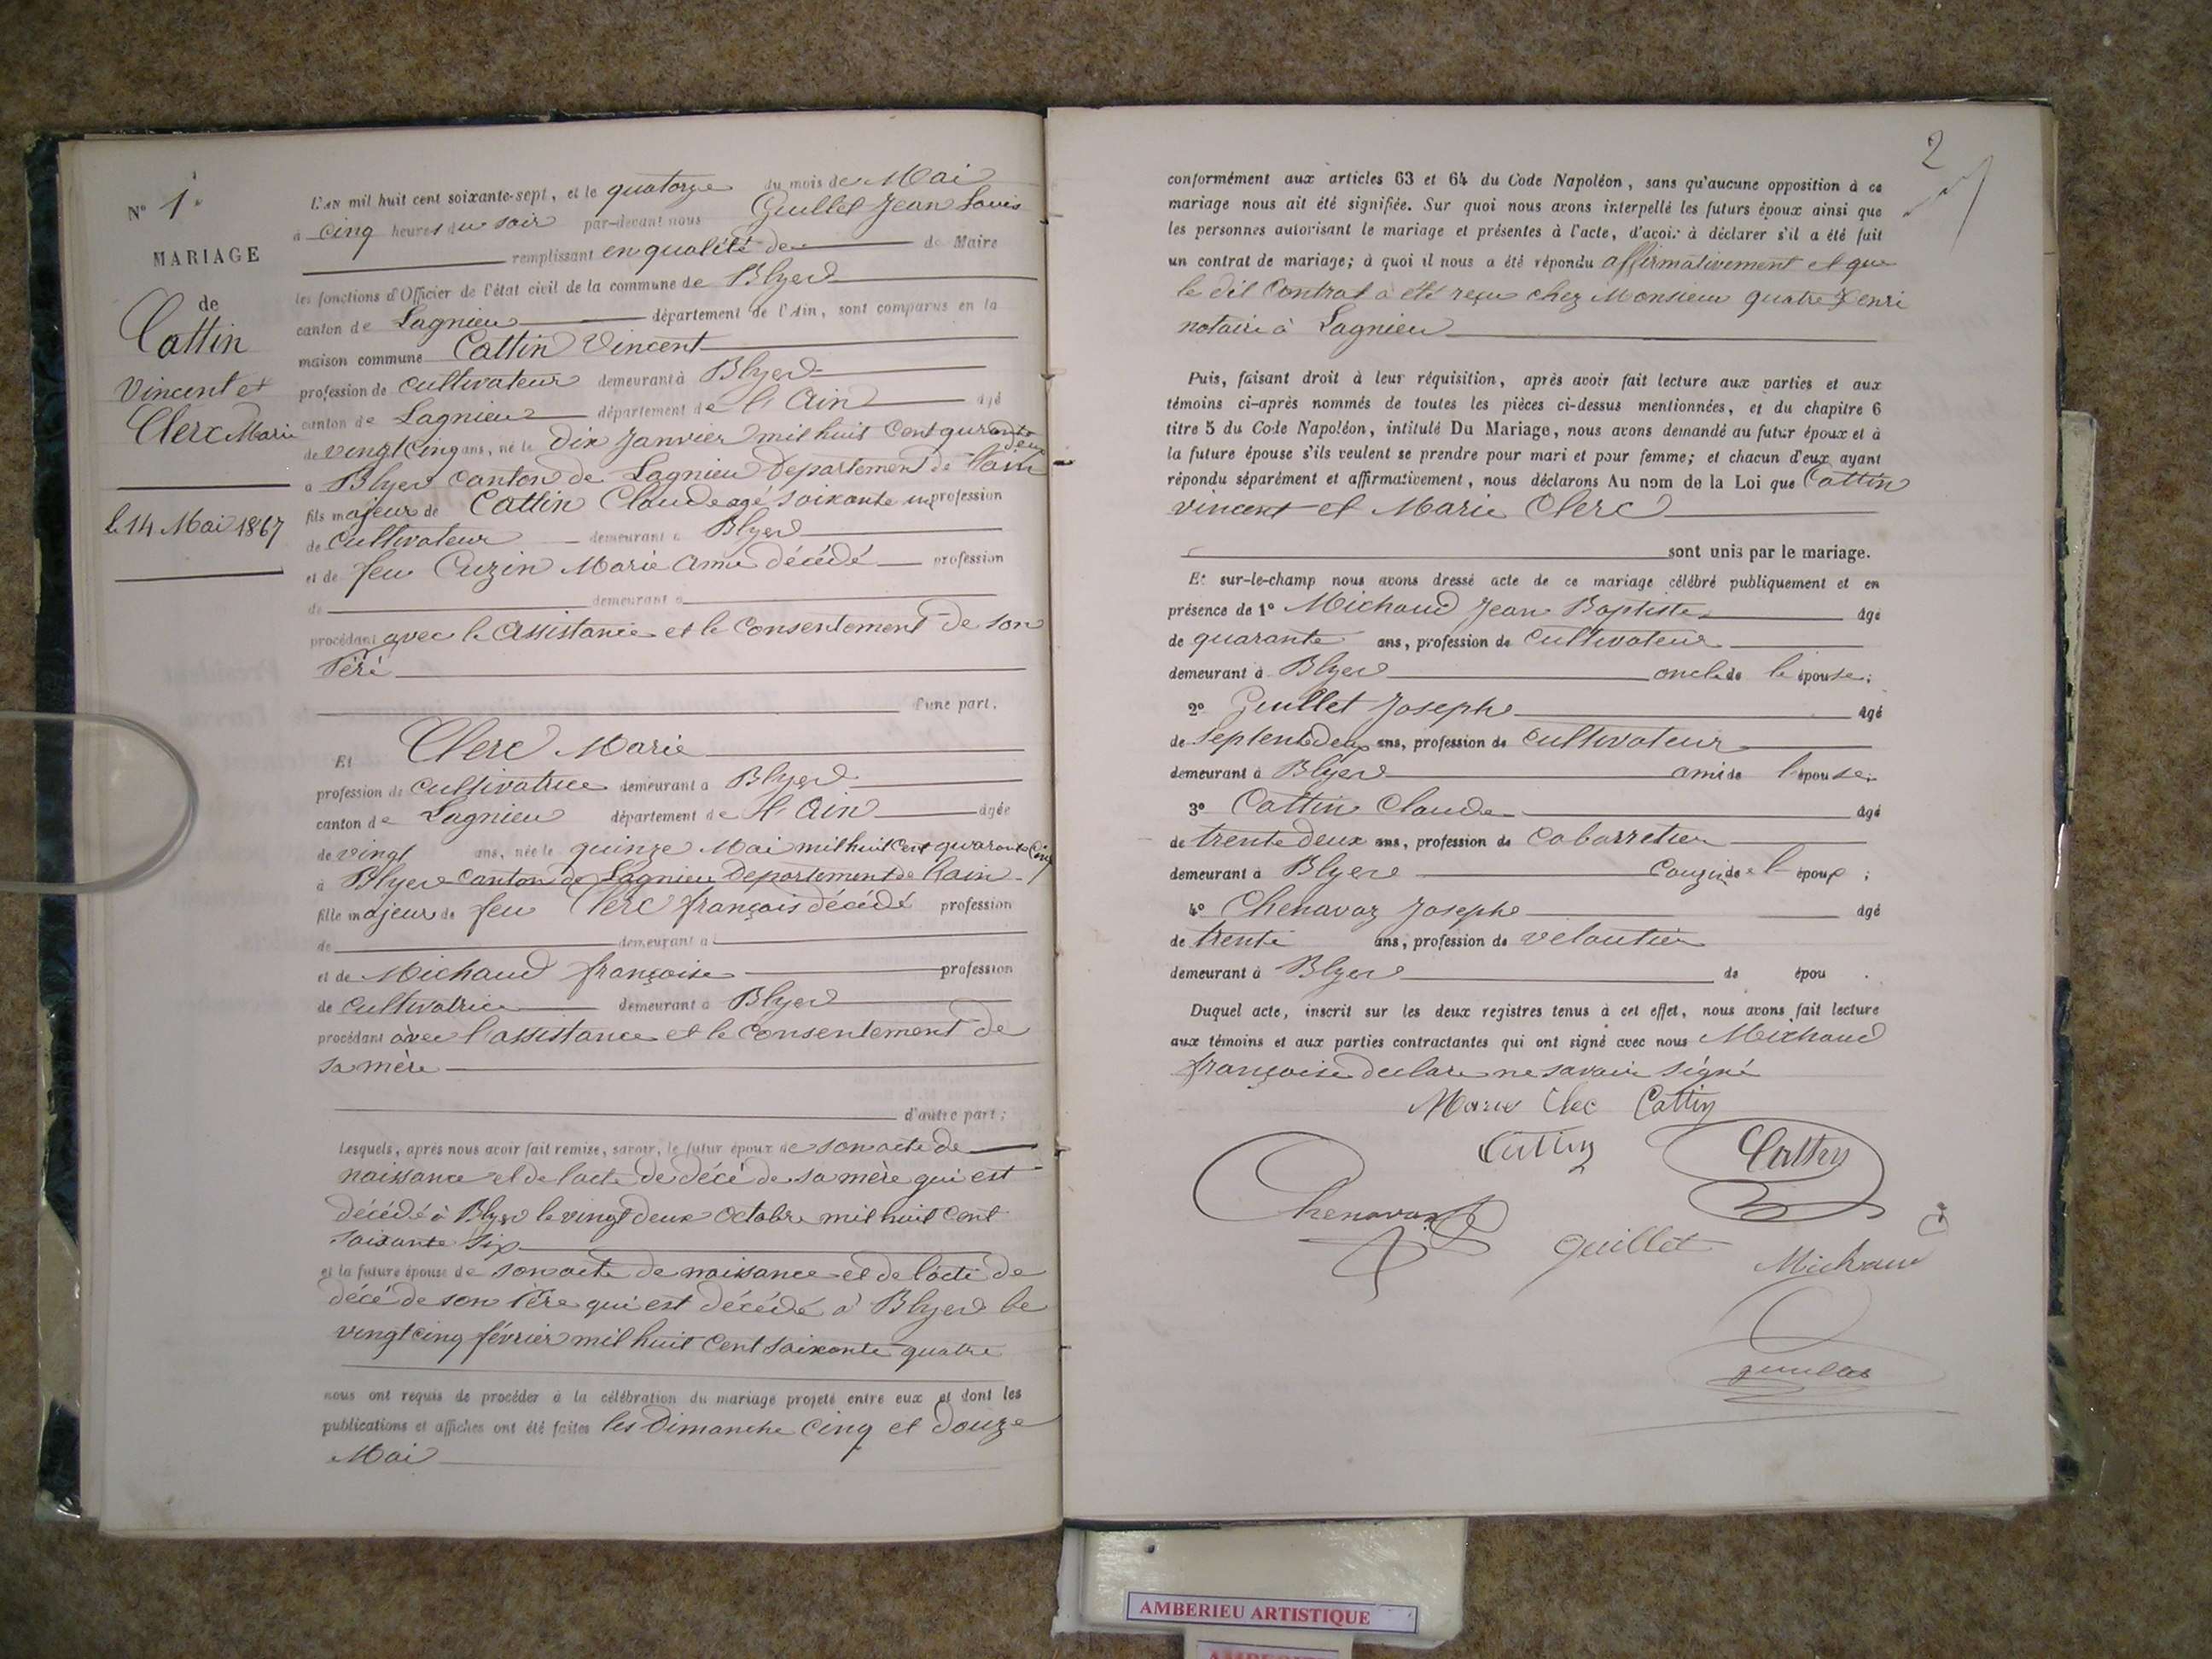 N° 1.
MARIAGE
de
Cattin
Vincent et
Clerc Marie
le 14 Mai 1867
L'AN mil huit cent soixante-sept, et le quatorze du mois de Mai
à cinq heures du soir par-devant nous Guillet Jean Louis
remplissant en qualité de de Maire
les fonctions d'Officier de l'état civil de la commune de Blyes
canton de Lagnieu département de l'Ain, sont comparus en la
maison commune Cattin Vincent
profession de cultivateur demeurant à Blyes
canton de Lagnieu département de l'Ain âgé
de vingt cinq ans, né le dix Janvier mil huit cent quarante deux
à Blyes canton de Lagnieu Departement de l'ain
fils majeur de Cattin Claude agé soixante un profession
de cultivateur demeurant à Blyes
et de feu Cuzin Marie Anne décédé profession
de demeurant à
procédant avec le assistance et le consentement de son
Péré
d'une part,
Et Clerc Marie
profession de cultivatrice demeurant à Blyes
canton de Lagnieu département de l'Ain âgée
de vingt ans, née le quinze Mai mil huit cent quarante cinq
à Blyes canton de Lagnieu Departement de lain
fille majeur de feu Clerc françois décédé profession
de demeurant à
et de Michaud françoise profession
de cultivatrice demeurant à Blyes
procédant avec l'assistance et le consentement de
sa mère
d'autre part;
Lesquels, après nous avoir fait remise, savoir, le futur époux de son acte de
naissance et de lacte de décé de sa mère qui est
décédé à Blyes le vingt deux Octobre mil huit cent
soixante six
et la future épouse de son acte de naissance et de lacte de
décé de son Père qui est décédé à Blyes le
vingt cinq février mil huit cent soixante quatre
nous ont requis de procéder à la célébration du mariage projeté entre eux et dont les
publications et affiches ont été faites les Dimanche cinq et douze
Mai
2
conformément aux articles 63 et 64 du Code Napoléon, sans qu'aucune opposition à ce
mariage nous ait été signifiée. Sur quoi nous avons interpellé les futurs époux ainsi que
les personnes autorisant le mariage et présentes à l'acte, d'avoir à déclarer s'il a été fait
un contrat de mariage; à quoi il nous a été répondu affirmativement et que
le dit Contrat à été reçu chez Monsieur quatre henri
notaire à Lagnieu
Puis, faisant droit à leur réquisition, après avoir fait lecture aux parties et aux
témoins ci-après nommés de toutes les pièces ci-dessus mentionnées, et du chapitre 6
titre 5 du Code Napoléon, intitulé Du Mariage, nous avons demandé au futur époux et à
la future épouse s'ils veulent se prendre pour mari et pour femme; et chacun d'eux ayant
répondu séparément et affirmativement, nous déclarons Au nom de la Loi que Cattin
vincent et Marie Clerc
sont unis par le mariage.
Et sur-le-champ nous avons dressé acte de ce mariage célébré publiquement et en
présence de 1° Michaud Jean Baptiste âgé
de quarante ans, profession de cultivateur
demeurant à Blyes oncle de le épouse;
2° Guillet Joseph âgé
de septente deux ans, profession de cultivateur
demeurant à Blyes ami de l'épouse;
3° Cattin Claude âgé
de trente deux ans, profession de cabarretier
demeurant à Blyes couzin de l'époux;
4° Chenavaz Joseph âgé
de trente ans, profession de veloutier
demeurant à Blyes de épou .
Duquel acte, inscrit sur les deux registres tenus à cet effet, nous avons fait lecture
aux témoins et aux parties contractantes qui ont signé avec nous Michaud
françoise declare ne savoir signé
Marie Clec Cattin
Cattin Cattin
Chenavaz
Guillet Michaud
AMBERIEU ARTISTIQUE